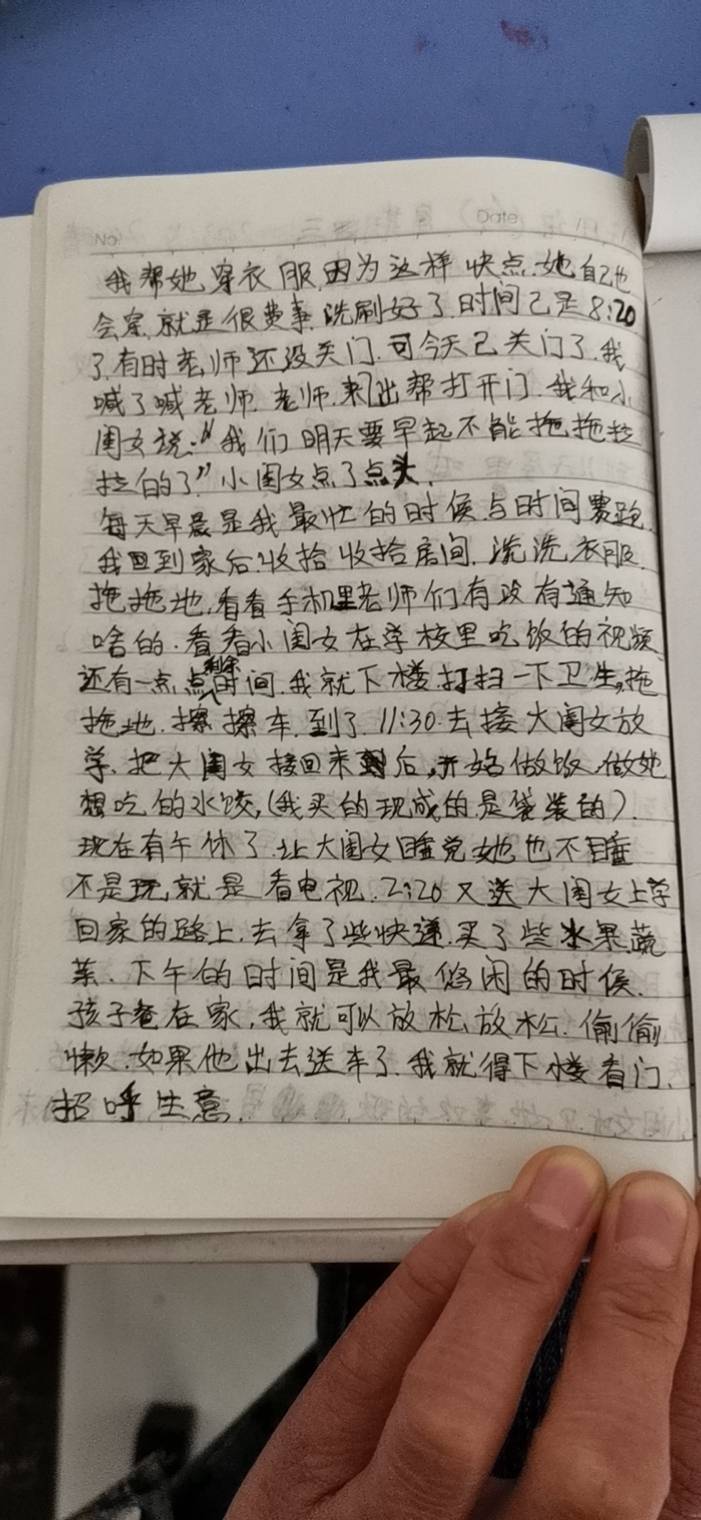 No.
Date
我帮她穿衣服,因为这样快点.她自己也
会穿,就是很费事.洗刷好了.时间已是8:20
了,有时老师还没关门.可今天已关门了.我
喊了喊老师.老师.来出帮打开门.我和小
闺女说:"我们明天要早起不能拖拖拉
拉的了."小闺女点了点头.
每天早晨是我最忙的时候.与时间赛跑.
我回到家后.收拾收拾房间.洗洗衣服.
拖拖地,看看手机里老师们有没有通知
啥的.看看小闺女在学校里吃饭的视频.
还有一点点剩余时间.我就下楼.打扫一下卫生,拖
拖地.擦擦车.到了.11:30.去接大闺女放
学.把大闺女接回来后,开始做饭.做她
想吃的水饺,(我买的现成的.是袋装的).
现在有午休了.让大闺女睡觉她也不睡
不是玩,就是看电视.2:20又送大闺女上学
回家的路上.去拿了些快递.买了些水果.蔬
菜.下午的时间是我最悠闲的时候.
孩子爸在家,我就可以放松放松.偷偷
懒.如果他出去送车了.我就得下楼看门.
招呼生意.